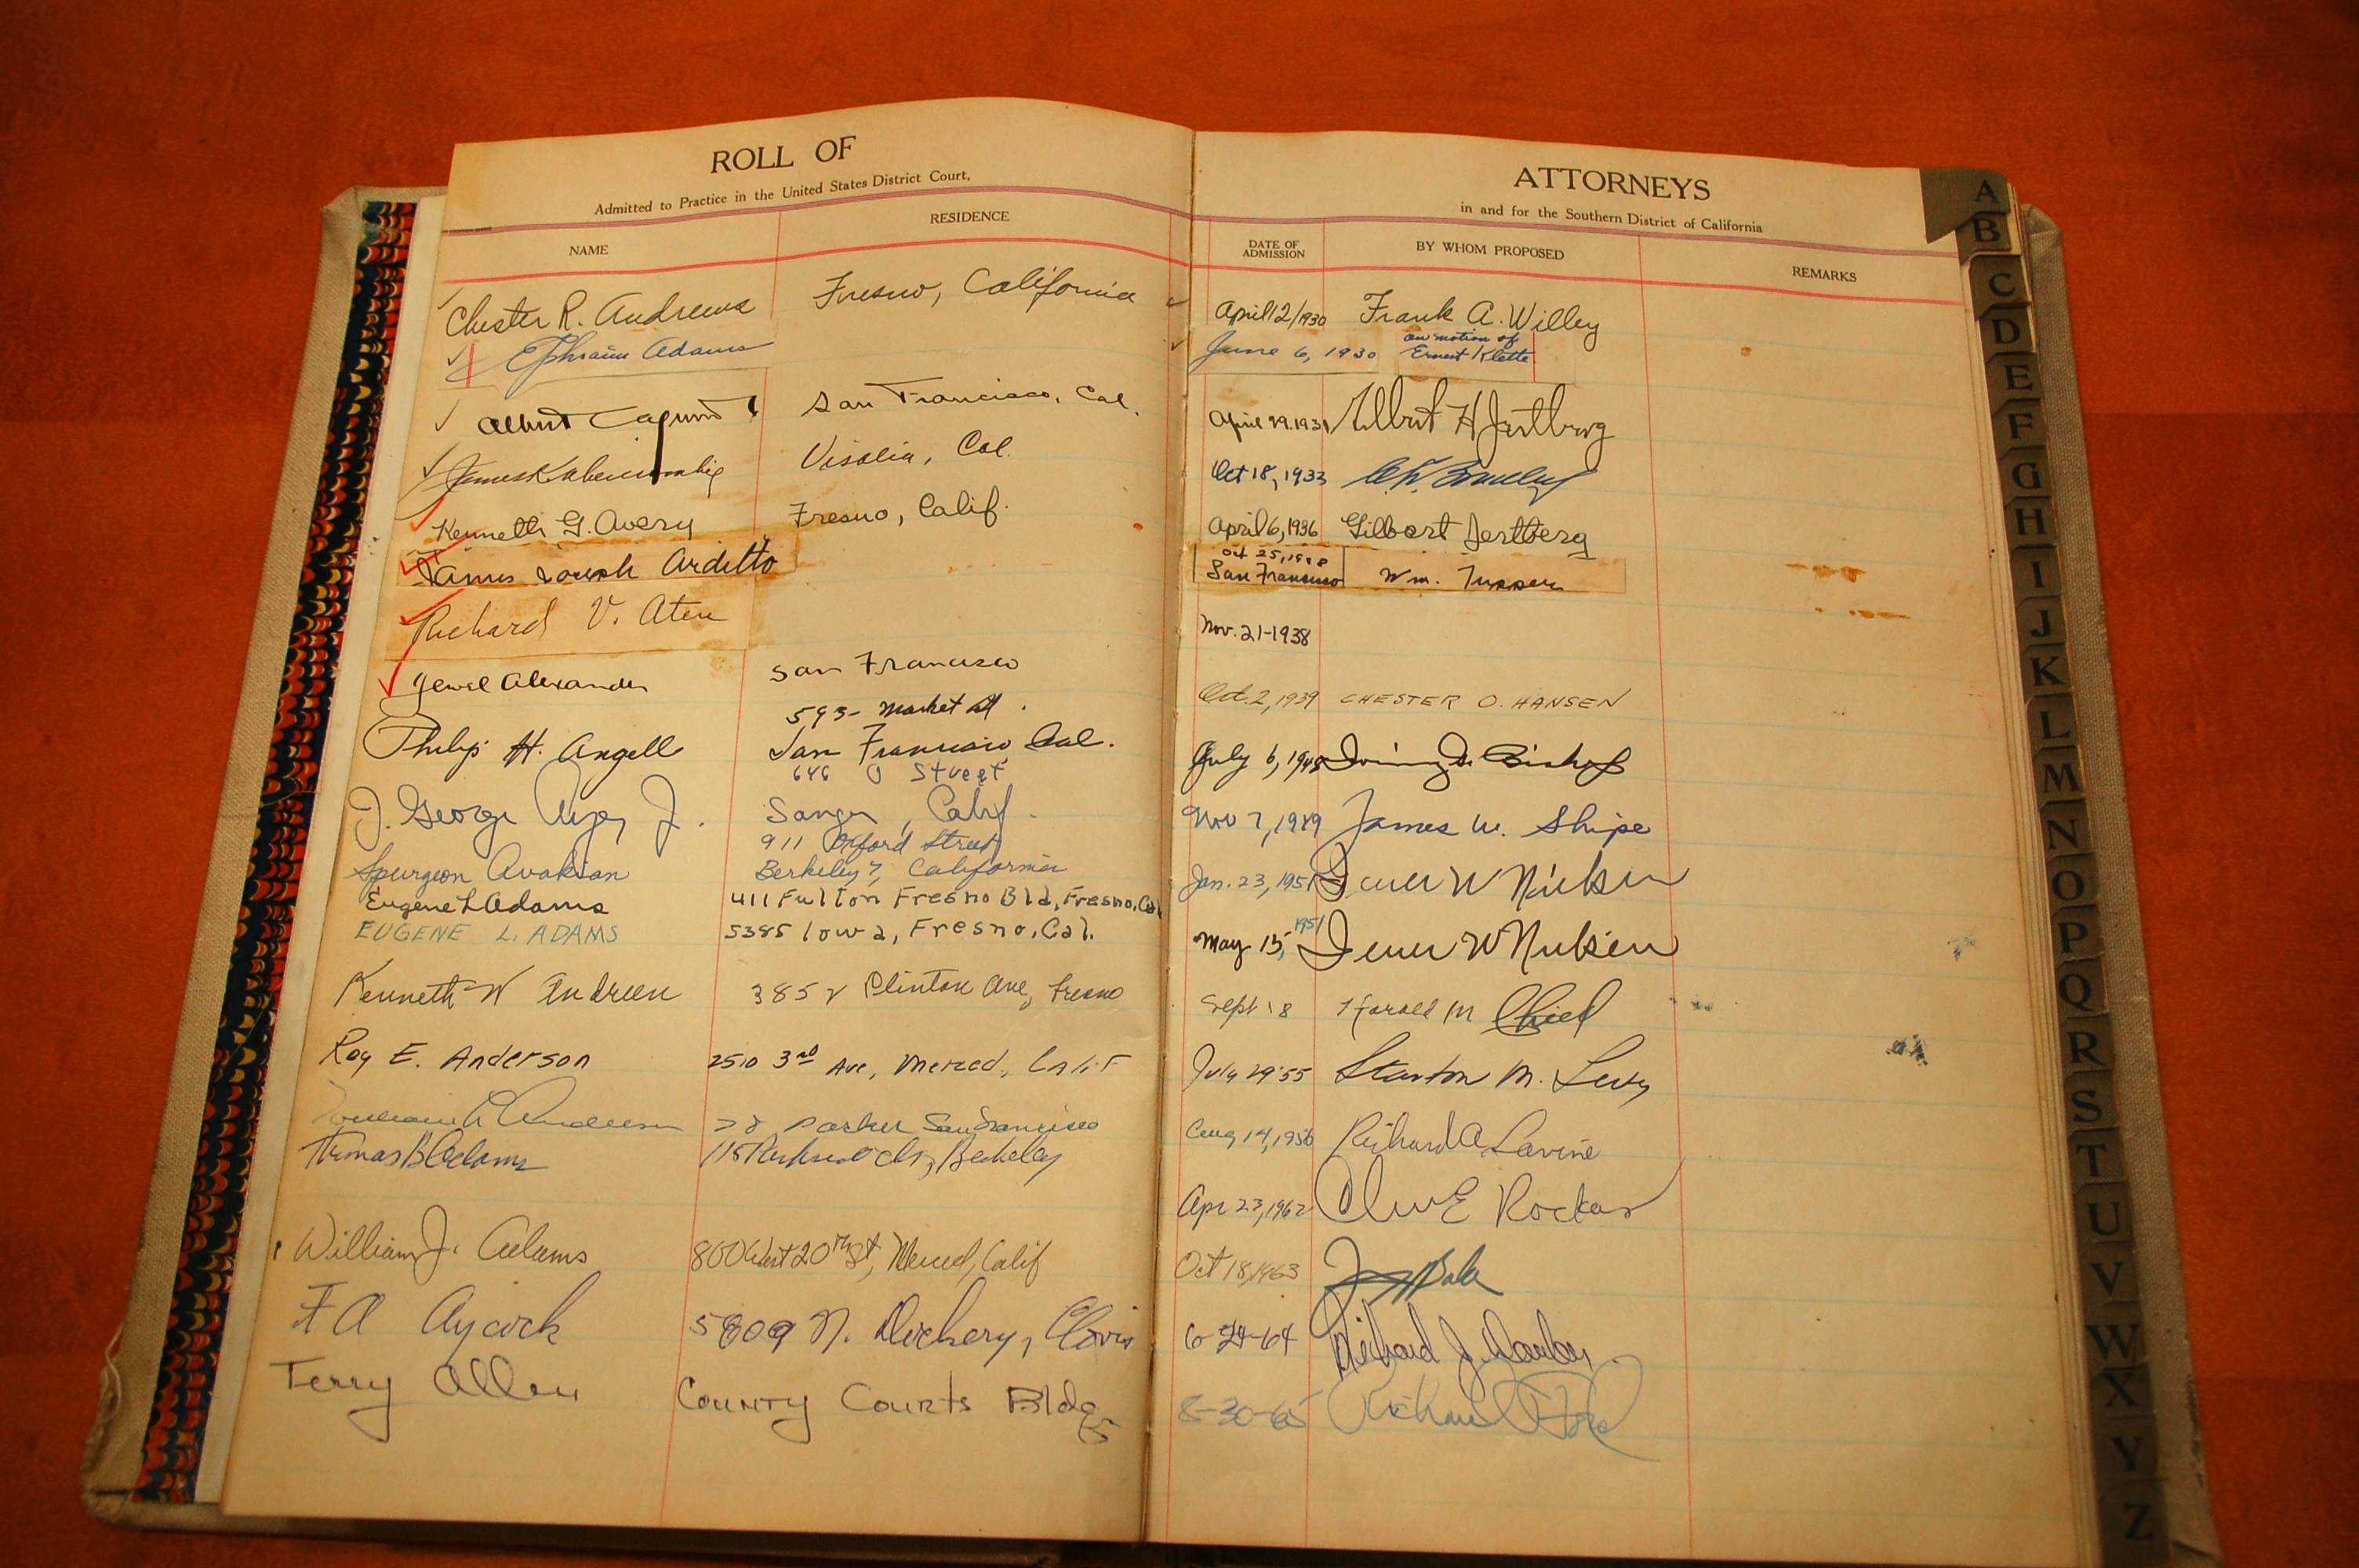 ROLL OF ATTORNEYS
Admitted to Practice in the United States District Court, in and for the Southern District of California
NAME RESIDENCE DATE OF ADMISSION BY WHOM PROPOSED REMARKS
Chester R. Andrews Fresno, California April 2/1930 Frank A. Willey
Ephraim Adams June 6, 1930 on motion of Ernest Klette
Albert San Francisco, Cal. April 29, 1931 Albert H
James K Abercrombie Visalia, Cal. Oct 18, 1933
Kenneth G. Avery Fresno, Calif. April 6, 1936 Gilbert Jertberg
James Joseph Arditto Oct 25, San Francisco Wm. Tupper
Richard V. Aten Nov. 21-1938
Jewel Alexander San Francisco Oct. 2, 1939 CHESTER O. HANSEN
593- Market St.
Philip H. Angell San Francisco Cal. July 6, 1948 Irving D. Bishop
646 O Street
J. George Sanger, Calif. Nov 7, 1949 James W. Shipe
911 Oxford Street
Spurgeon Avakian Berkeley 7, California Jan. 23, 1951 W Nielsen
Eugene L Adams 411 Fulton Fresno Bld, Fresno, Cal
EUGENE L. ADAMS 5385 Iowa, Fresno, Cal. May 15, 1951 W Nielsen
Kenneth W Andreen 3852 Clinton Ave, Fresno Sept 18 Harold M Child
Roy E. Anderson 2510 3rd Ave, Merced, Calif July 29 '55 Stanton M. Levy
William Anderson Parker San Francisco Aug 14, 1956 Richard A Lavine
Thomas B Adams Berkeley Apr 23, 1962
William J. Adams 800 West 20th St, Merced, Calif Oct 18, 1963
F A Aycock 5809 N. Dickery, Clovis 6-24-64 Richard J.
Terry Allen COUNTY COURTS Bldg 8-30-65 Richard
A
B
C
D
E
F
G
H
I
J
K
L
M
N
O
P
Q
R
S
T
U
V
W
X
Y
Z